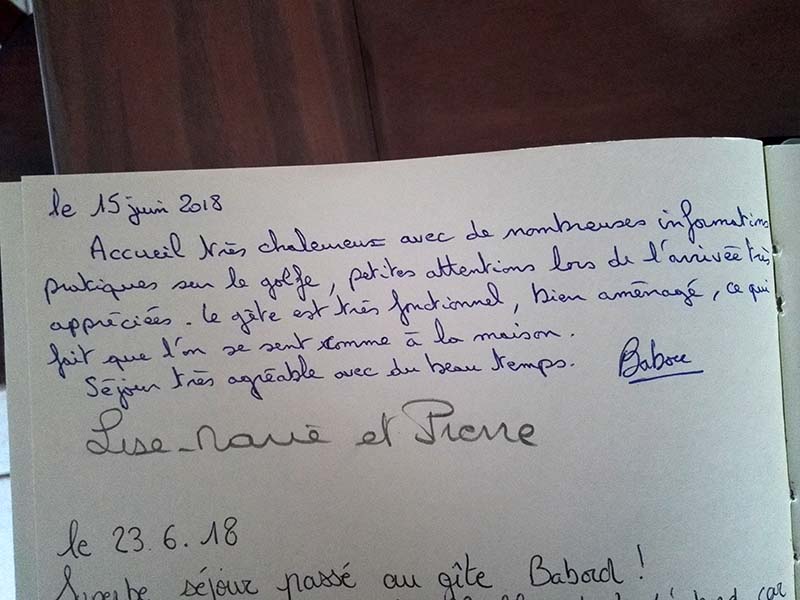 le 15 juin 2018
Accueil très chaleureux avec de nombreuses informations
pratiques sur le golfe, petites attentions lors de l'arrivée très
appréciées. Le gîte est très fonctionnel, bien aménagé, ce qui
fait que l'on se sent comme à la maison.
Séjour très agréable avec du beau temps.
Lise-Marie et Pierre
le 23.6.18
Superbe séjour passé au gîte Babord !
car